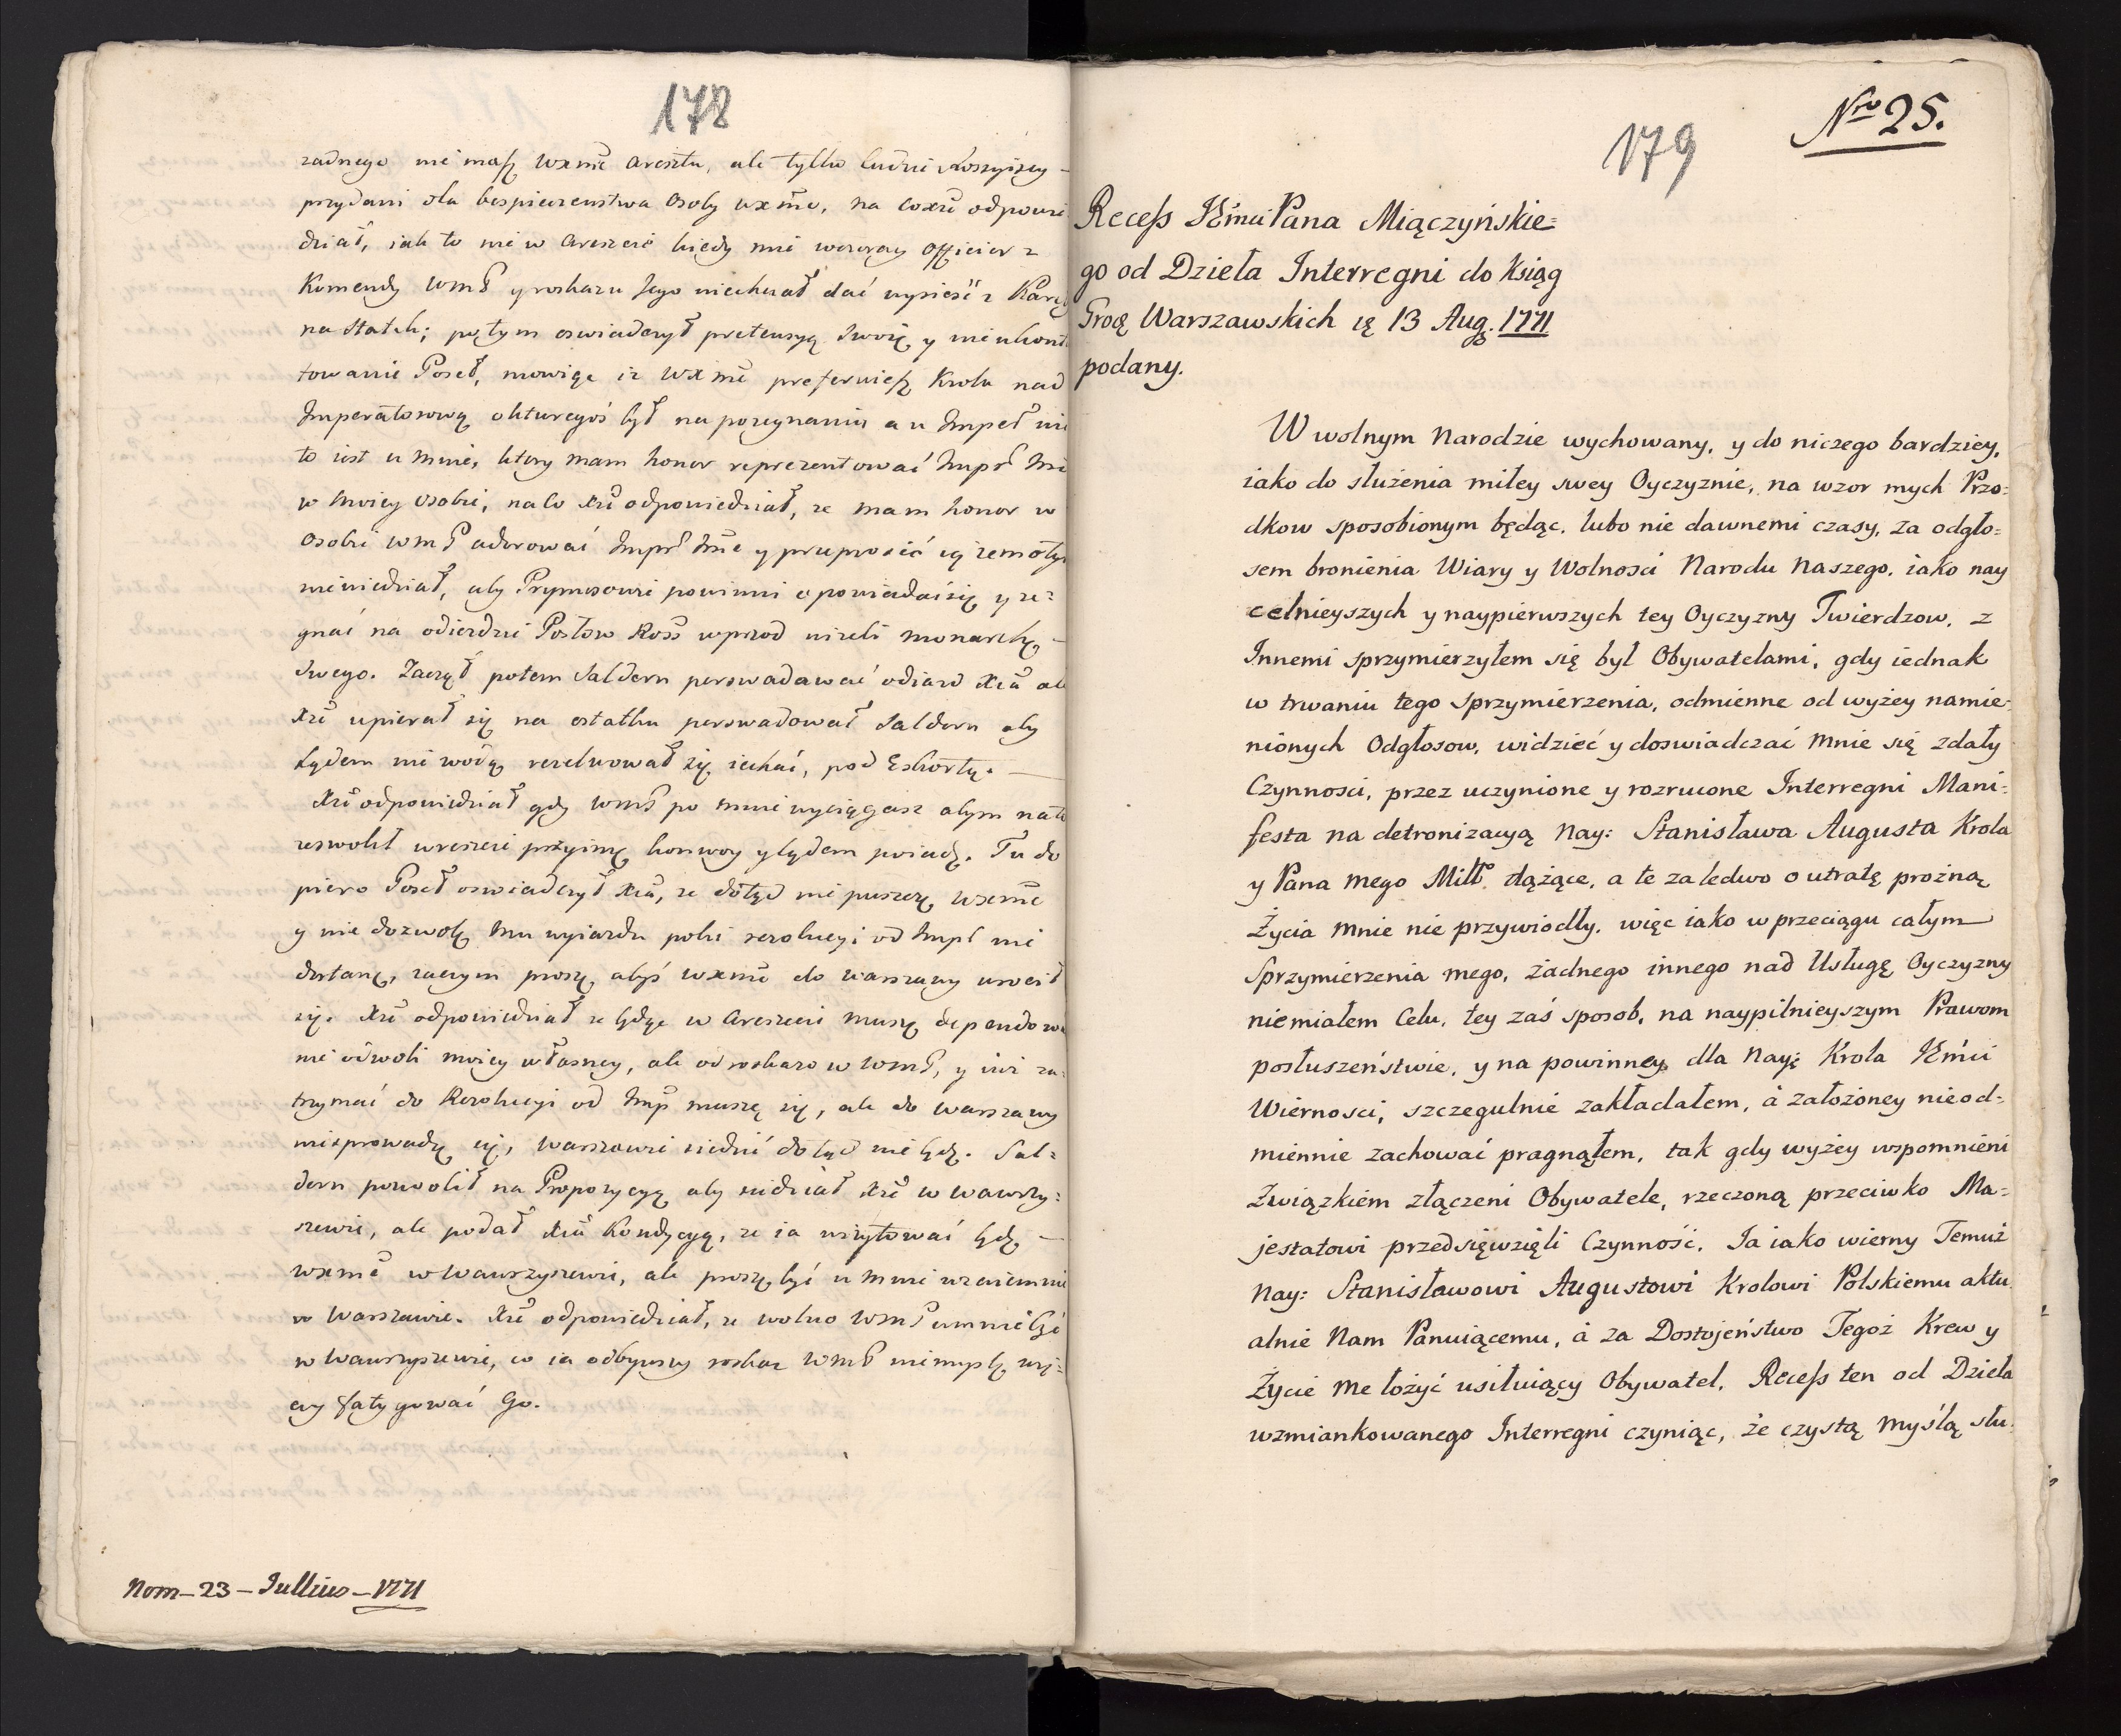 178
zadnego nie masz WXmć aresztu, ale tylko ludzi Rossyiscy
przydani dla bespieczenstwa osoby wxmć, na co Xże odpowie
dział, iak to nie w areszcie kiedy mnie wczoray officier z
Komendy WmP y roskazu Jego niechciał dać wysieść z
na statek; potym oswiadczył pretensyą swoię y nieukont
towanie Poseł, mowiąc iz WXmć preferuiesz Krola nad
Imperatorową u ktoregoś był na pozegnaniu a u Imper nie
to iest u mnie, ktory mam honor reprezentować Impr
w moiey osobie, na co Xże odpowiedział, ze mam honor w
osobie WmP adorować Impr Jmć y przeprosić ią zem
niewiedział, aby Prymasowie powinni opowiadać się y ze=
gnać na odiezdzie Posłow Ross wprzod nizeli monarchę
swego. Zaczął potem Saldern perswadawać odiazd Xcia ale
Xże upierał się na ostatku perswadował Saldern aby
Lądem nie wodą rezelwował się iechać, pod Eskortę.
Xże odpowiedział gdy WmP po mnie wyciągasz abym na to
zezwolił wreszcie przyimę konwoy y lądem poiadę. Tu do
piero Poseł oswiadczył Xciu, ze dotąd nie puszczę wxmć
y nie dozwolę mu wyiazdu poki rezolucyi od Impr nie
dostanę, zaczym proszę abyś wxmć do warszawy wrocił
się. Xże odpowiedział ze będąc w areszcie muszę dependowa
nie od woli moiey własney, ale od roskazow WmP, y iuz za=
trzymać do Rezolucyi od Imp muszę się, ale do warszawy
nieprowadzę się, Warszawie siedzieć dotąd nie będę. Sal=
dern pozwolił na Propozycyą aby siedział Xże w wawrzy=
szewie, ale podał Xciu Kondycyą, ze ia wizytować będę
wxmć w Wawrzyszewie, ale proszę być u mnie wzaiemnie
w Warszawie. Xże odpowiedział, ze wolno WmP u mnie być
w Wawrzyszewie, co ia odbywszy roskaz WmP niemyslę wię=
cey fatygować Go.
Nom – 23 – Jullius – 1771
Nro 25.
179
Recess JEmci Pana Miączyńskie=
go od Dzieła Interregni do Ksiąg
Grod Warszawskich ię 13 Aug. 1771
podany.
W wolnym Narodzie wychowany, y do niczego bardziey,
iako do służenia miłey swey Oyczyznie, na wzor mych Przo=
dkow sposobionym będąc, lubo nie dawnemi czasy, za odgło=
sem bronienia Wiary y Wolnosci Narodu Naszego, iako nay
celnieyszych y naypierwszych tey Oyczyzny Twierdzow, z
Innemi sprzymierzyłem się był Obywatelami, gdy iednak
w trwaniu tego sprzymierzenia, odmienne od wyżey namie=
nionych Odgłosow, widzieć y doswiadczać mnie się zdały
Czynnosci, przez uczynione y rozrucone Interregni Mani=
festa na detronizacyą Nay: Stanisława Augusta Krola
y Pana mego Miłł. dążące, a te zaledwo o utratę prożną
Życia mnie nie przywiodły. więc iako w przeciągu całym
Sprzymierzenia mego, żadnego innego nad Usługę Oyczyzny
niemiałem Celu, tey zaś sposob, na naypilnieyszym Prawom
posłuszeństwie, y na powinney dla Nay: Krola JEmci
Wiernosci, szczegulnie zakładałem, á założoney nieod=
miennie zachować pragnąłem, tak gdy wyżey wspomnieni
Związkiem złączeni Obywatele, rzeczoną przeciwko Ma=
jestatowi przedsięwzięli Czynność. Ja iako wierny Temuż
Nay: Stanisławowi Augustowi Krolowi Polskiemu aktu
alnie Nam Panuiącemu, á za Dostojeństwo Tegoż Krew y
Życie me łożyć usiłuiący Obywatel, Recess ten od Dzieła
wzmiankowanego Interregni czyniąc, że czystą myślą słu=